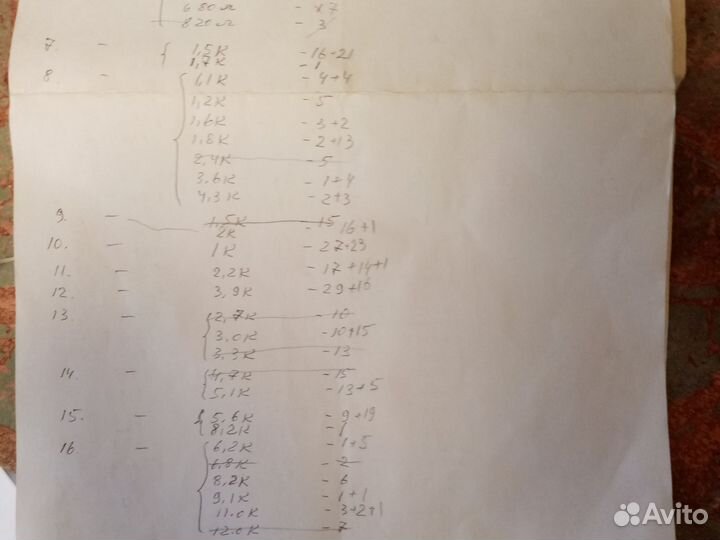 680 м - 17
820 м - 3
7. - { 1,5к - 16-21
1,7к - 1
8. - { 1,1к - 4+4
1,2к - 5
1,6к - 3+2
1,8к - 2+13
2,4к - 5
3.6к - 1+4
4,3к - 2+3
9. - 1,5к - 15
2к - 16+1
10. - 1к - 27+23
11. - 2,2к - 17+14+1
12. - 3,9к - 29+16
13 - { 2,7к - 10
3.0к - 10+15
3,3к - 13
14. - { 4,7к - 15
5,1к - 13+5
15. - { 5,6к - 9+19
8,2к - 1
16 - { 6,2к - 1+5
6,8к - 2
8,2к - 6
9,1к - 1+1
11.0к - 3+2+1
12.0к - 7
Avito